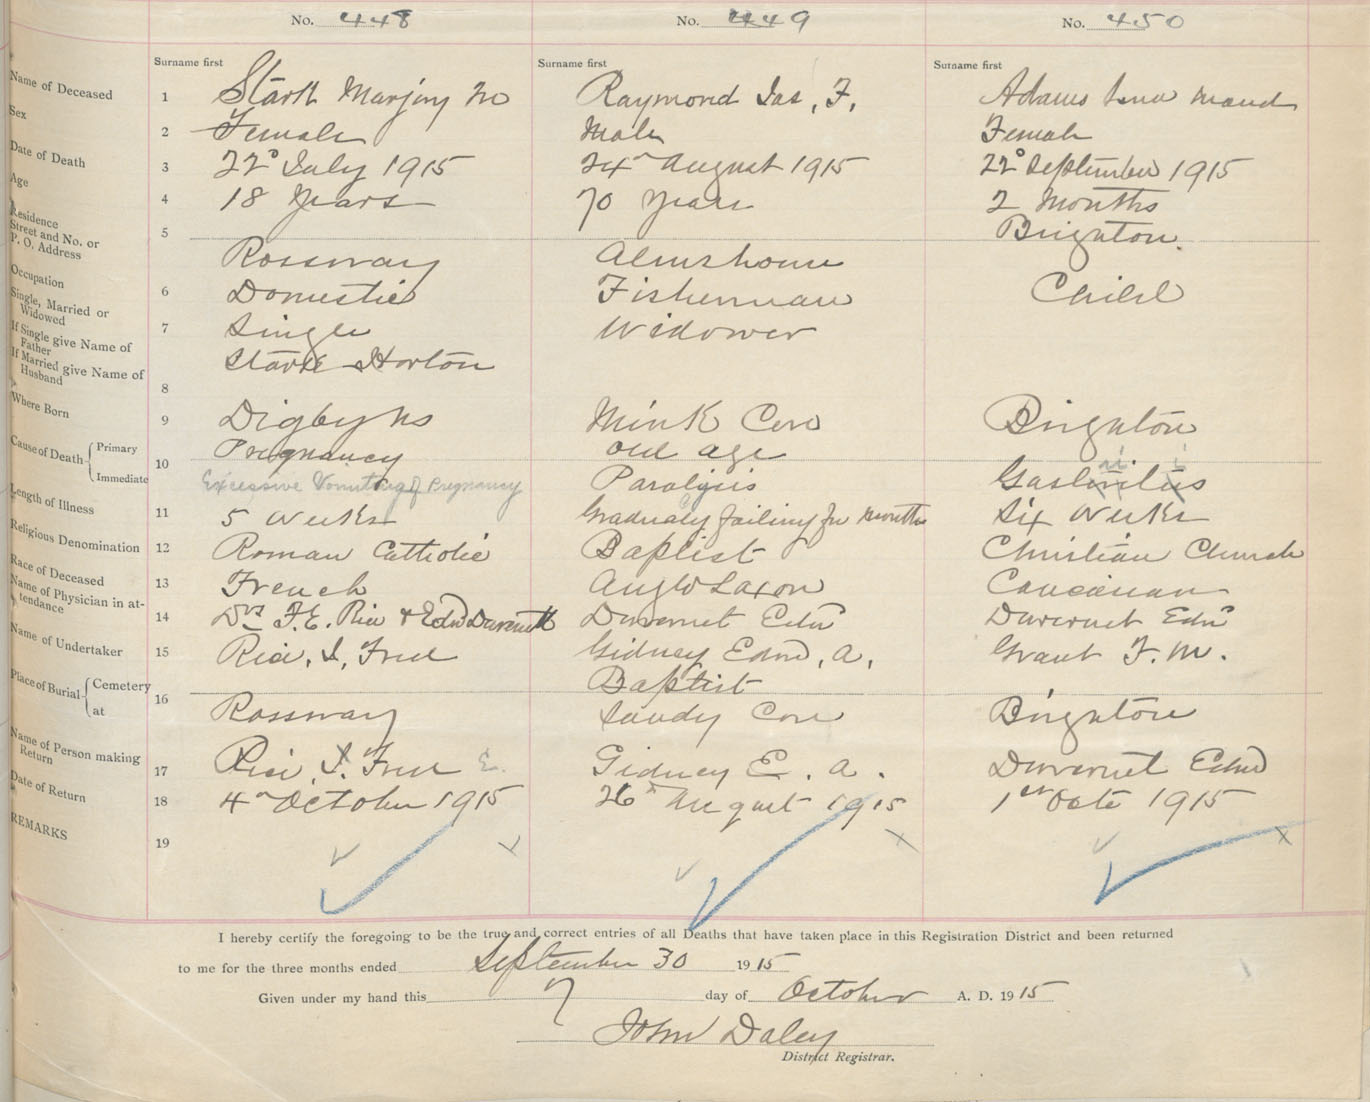 No. 448 No. 449 No. 450
Surname first Surname first Surname first
Name of Deceased 1 Stark Marjory Raymond Jas, F, Adams Maud
Sex 2 Female Male Female
Date of Death 3 22° July 1915 24th August 1915 22° September 1915
Age 4 18 Years 70 Years 2 Months
Residence
Street and No. or
P. O. Address 5 Brigaton.
Rossway Almshouse
Occupation 6 Domestic Fisherman Child
Single, Married or
Widowed 7 Single Widower
If Single give Name of
Father Stark Horton
If Married give Name of
Husband 8
Where Born 9 Digby NS Mink Cove Brigaton
Cause of Death Primary 10 Pregnancy Old age
Immediate Excessive Vomiting of Pregnancy Paralysis
Length of Illness 11 5 Weeks Gradualy failing for months Six Weeks
Religious Denomination 12 Roman Catholic Baptist Christian Church
Race of Deceased 13 French Anglo Saxon Caucasian
Name of Physician in at-
tendance 14 Drs F. E. Rice & Edw Duvernett Duvernet Edw Duvernet Edw
Name of Undertaker 15 Rice, I, Fred Gidney Edwd, A. Grant F. M.
Place of Burial Cemetery 16 Baptist
at Rossway Sandy Cove Brigaton
Name of Person making
Return 17 Rice, I. Fred E. Gidney E. A. Duvernet Edwd
Date of Return 18 4th October 1915 26th August 1915 1st Octe 1915
REMARKS 19
I hereby certify the foregoing to be the true and correct entries of all Deaths that have taken place in this Registration District and been returned
to me for the three months ended September 30 1915
Given under my hand this 7 day of October A. D. 1915
John Daley
District Registrar.